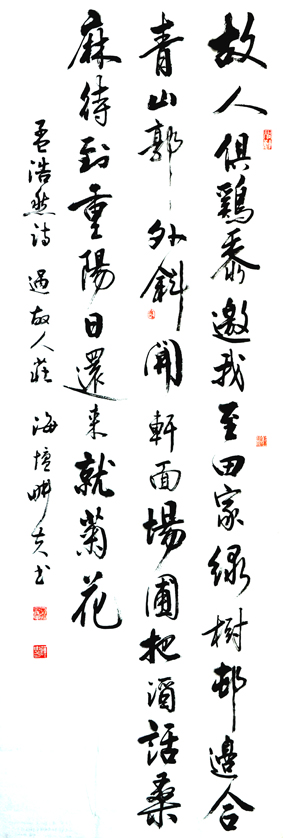 故人俱鷄黍邀我至田家緑樹邨邊合
青山郭外斜開軒面場圃把酒話桑
麻待到重陽日還来就菊花
孟浩然诗 過故人莊 海壇畊夫书